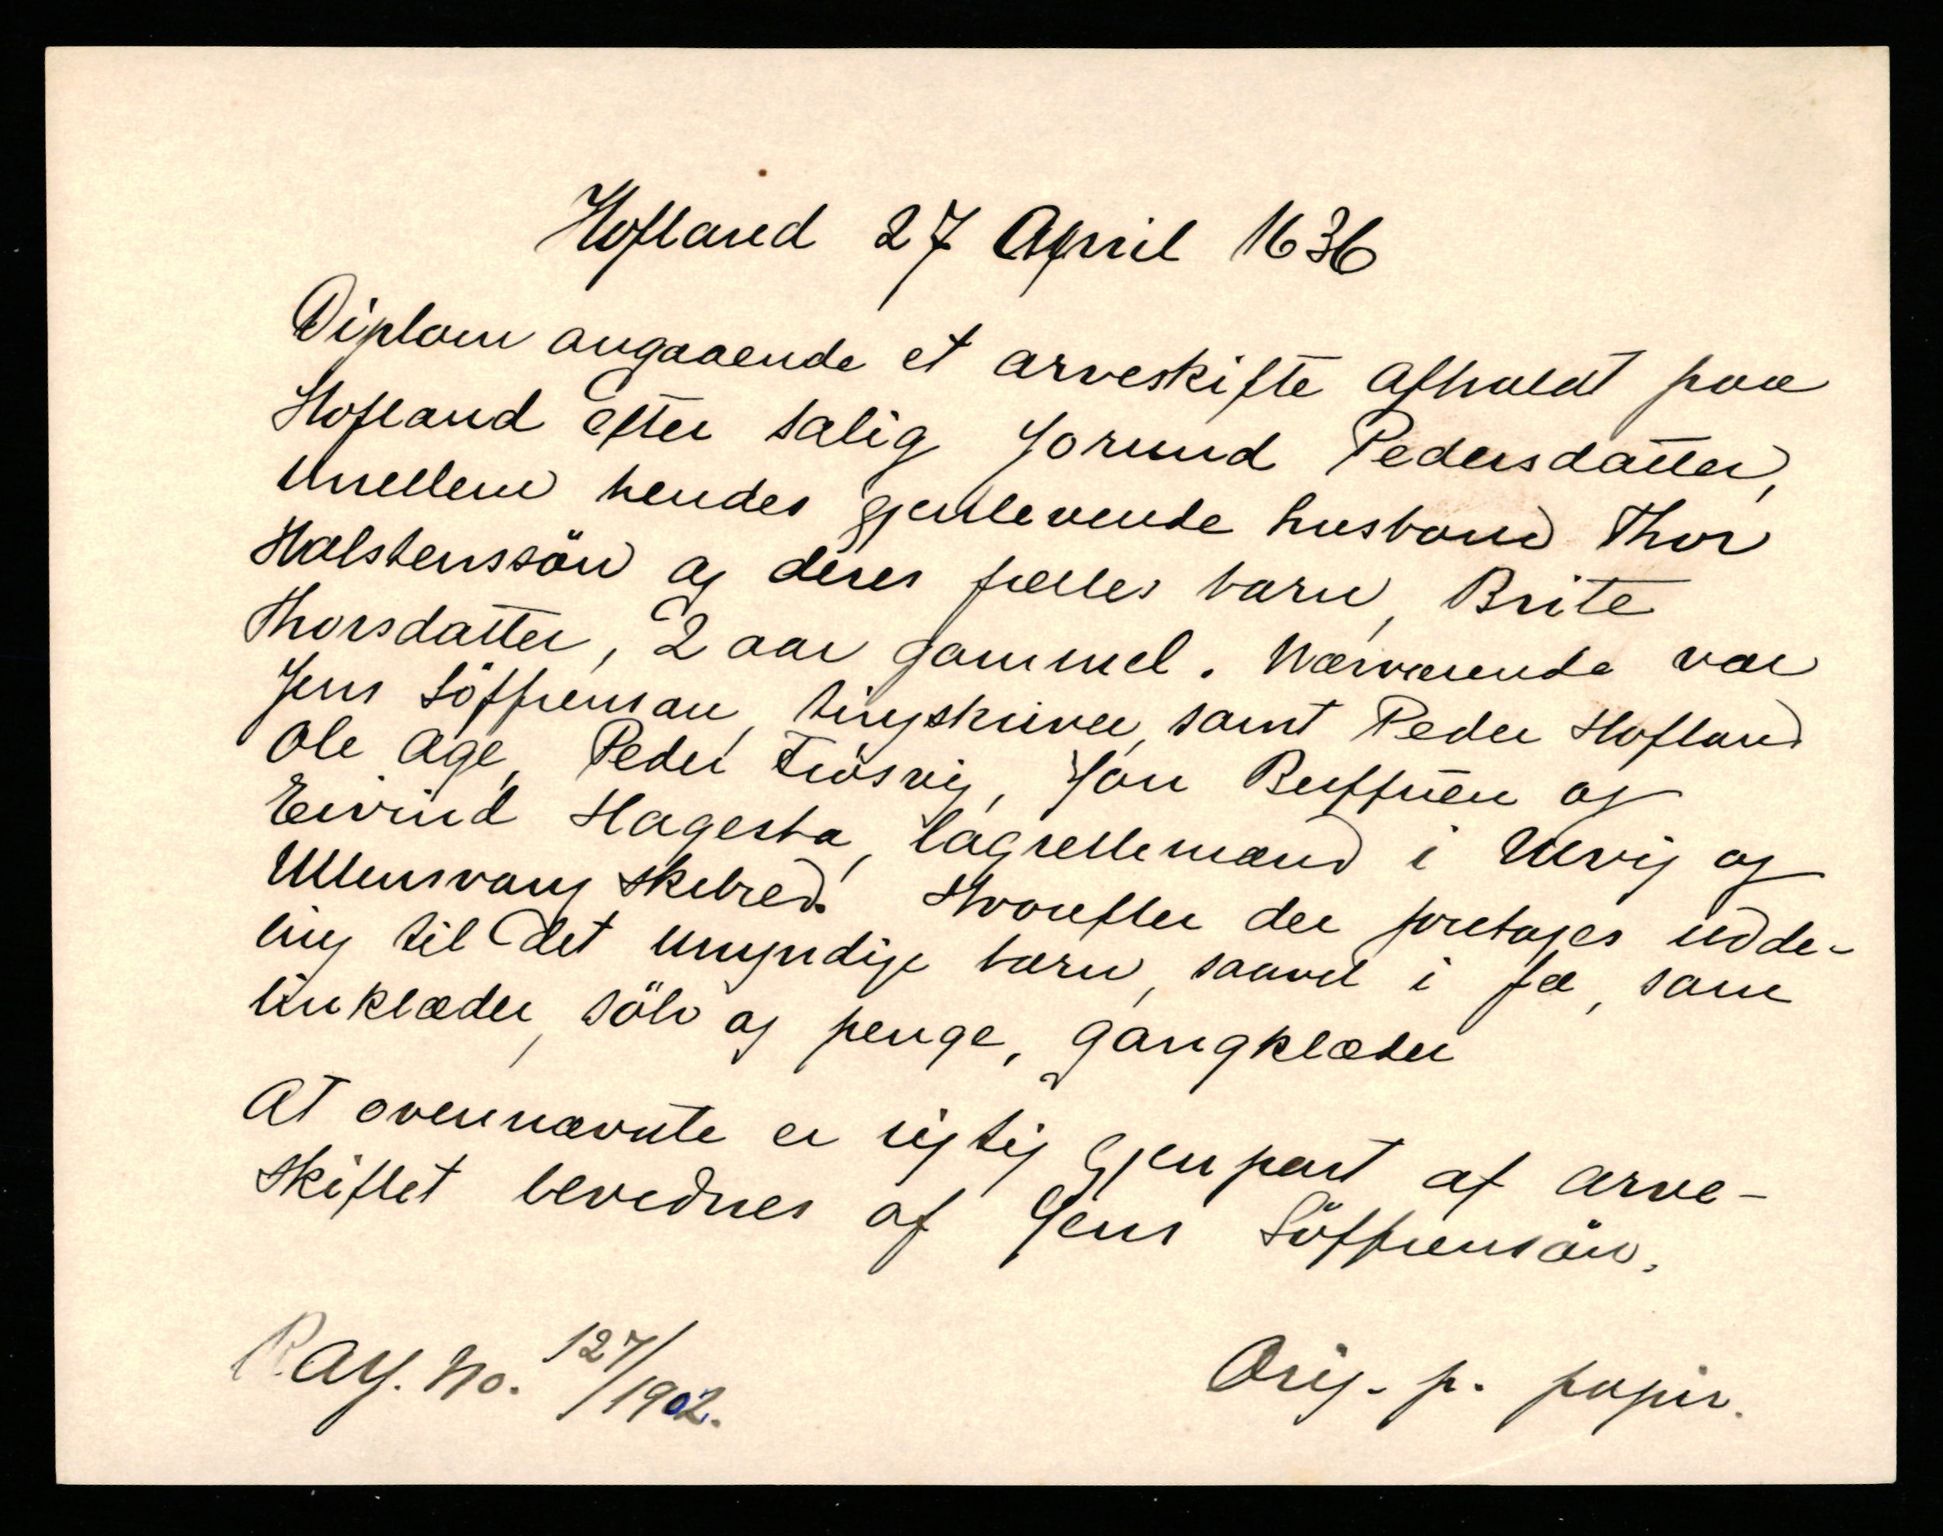 Hofland 27 April 1636
Diplom angaaende et arveskifte afholdt paa
Hofland efter salig Jorund Pedersdatter,
mellem hendes gjenlevende husbond Thor
Halstenssön og deres fælles barn, Brite
Thorsdatter, 2 aar gammel. Nærværende var
Jens Söffrensøn, tingskriver, samt Peder Hofland
Ole Age, Peder Tiösvig, Jon Buffuen og
Eivind Hagesta, lagrettemænd i Ulvig og
Ullensvang skibred. Hvorefter der foretages udde-
ling til det umyndige barn, saavel i fæ, som
linklæder, sölv og penge, gangklæder
At ovennævnte er rigtig gjenpart af arve-
skiftet bevidnes af Jens Söffrensön.
R.Ay. No. 127/1902.
Orig. p. papir.